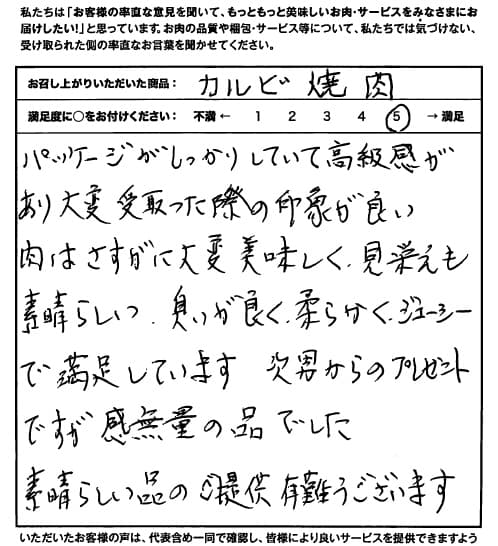 私たちは「お客様の率直な意見を聞いて、もっともっと美味しいお肉・サービスをみなさまにお
届けしたい！」と思っています。お肉の品質や梱包・サービス等について、私たちでは気づけない、
受け取られた側の率直なお言葉を聞かせてください。
お召し上がりいただいた商品： カルビ焼肉
満足度に○をお付けください： 不満 ← 1 2 3 4 5 → 満足
パッケージがしっかりしていて高級感が
あり大変受取った際の印象が良い
肉はさすがに大変美味しく、見栄えも
素晴らしいっ、臭いが良く、柔らかく、ジューシー
で満足しています 次男からのプレゼント
ですが感無量の品でした
素晴らしい品のご提供有難うございます
いただいたお客様の声は、代表含め一同で確認し、皆様により良いサービスを提供できますよう